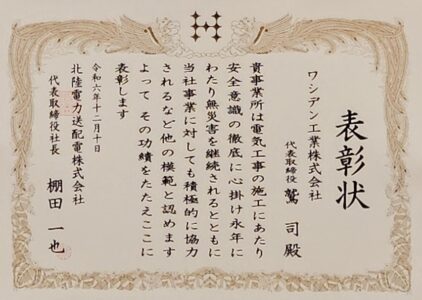 表彰状
ワシアン工業株式会社
代表取締役 鷲 司 殿
貴事業所は電気工事の施工にあたり
安全意識の徹底に心掛け永年に
わたり無災害を継続されるとともに
当社事業に対しても積極的に協力
されるなど他の模範と認めます
よって その功績をたたえここに
表彰します
令和六年十二月十日
北陸電力送配電株式会社
代表取締役社長 棚田 一也